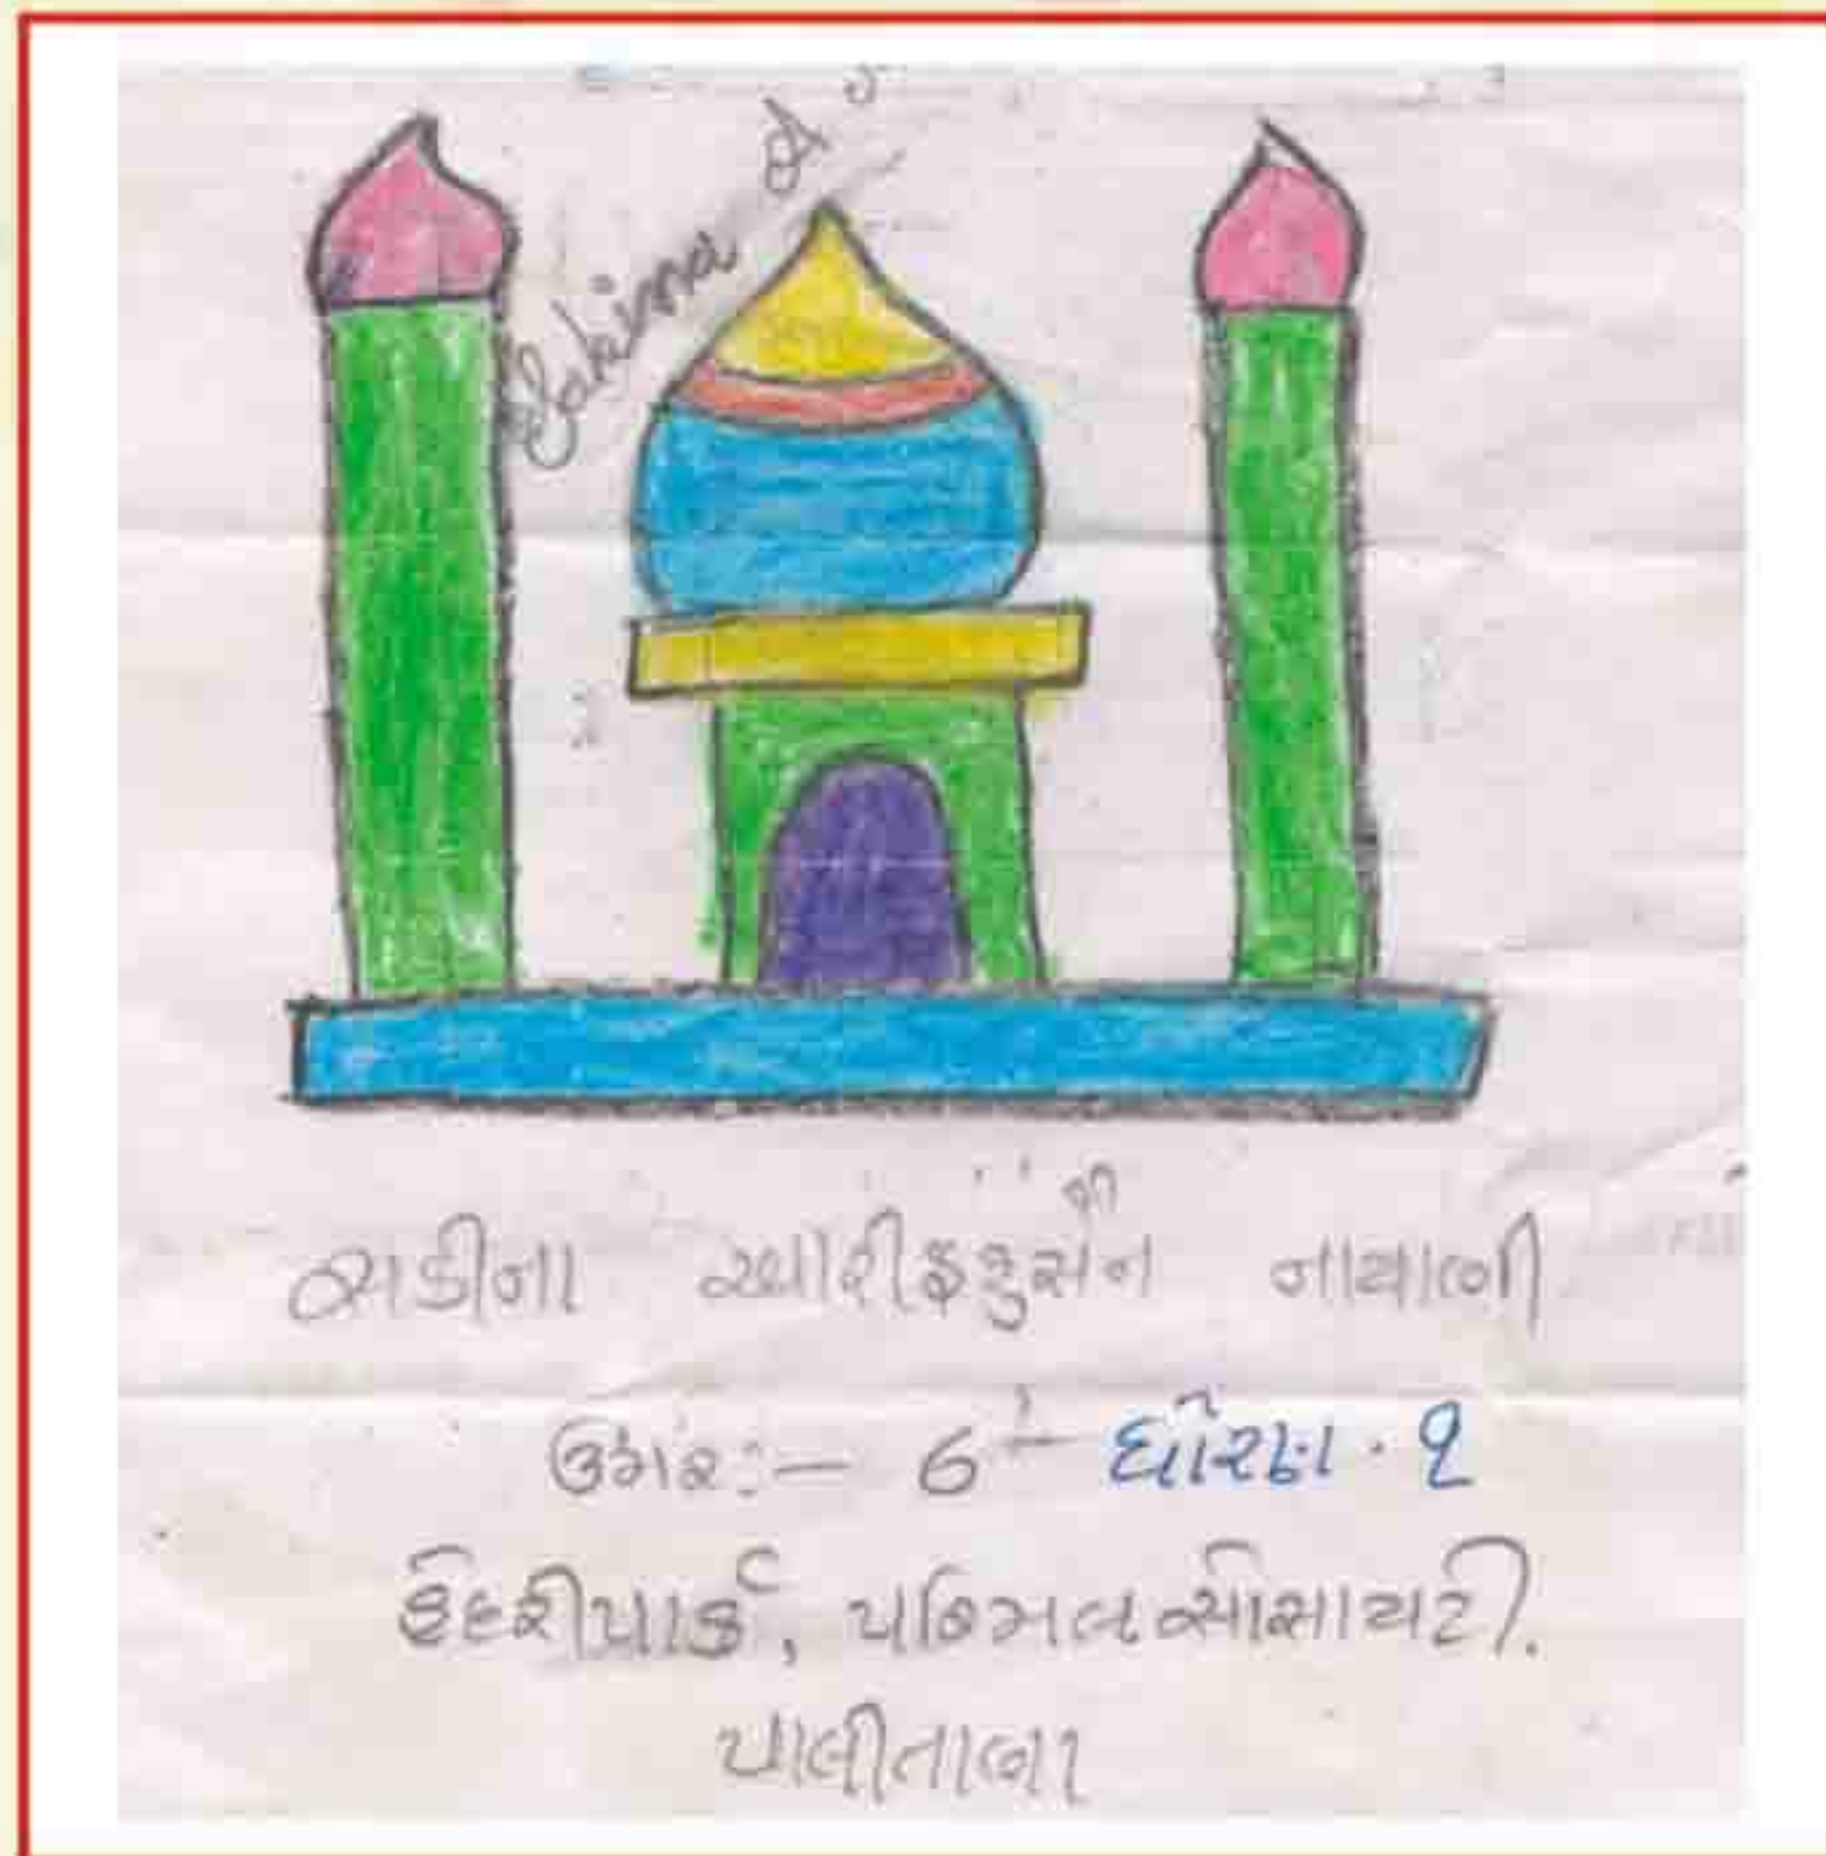 Sakina A
સકીના આરીફહુસેન નાયાણી
ઉંમર:- 6 - ધોરણ . ૧
હૈદરીપાર્ક, પરિમલ સોસાયટી.
પાલીતાણા